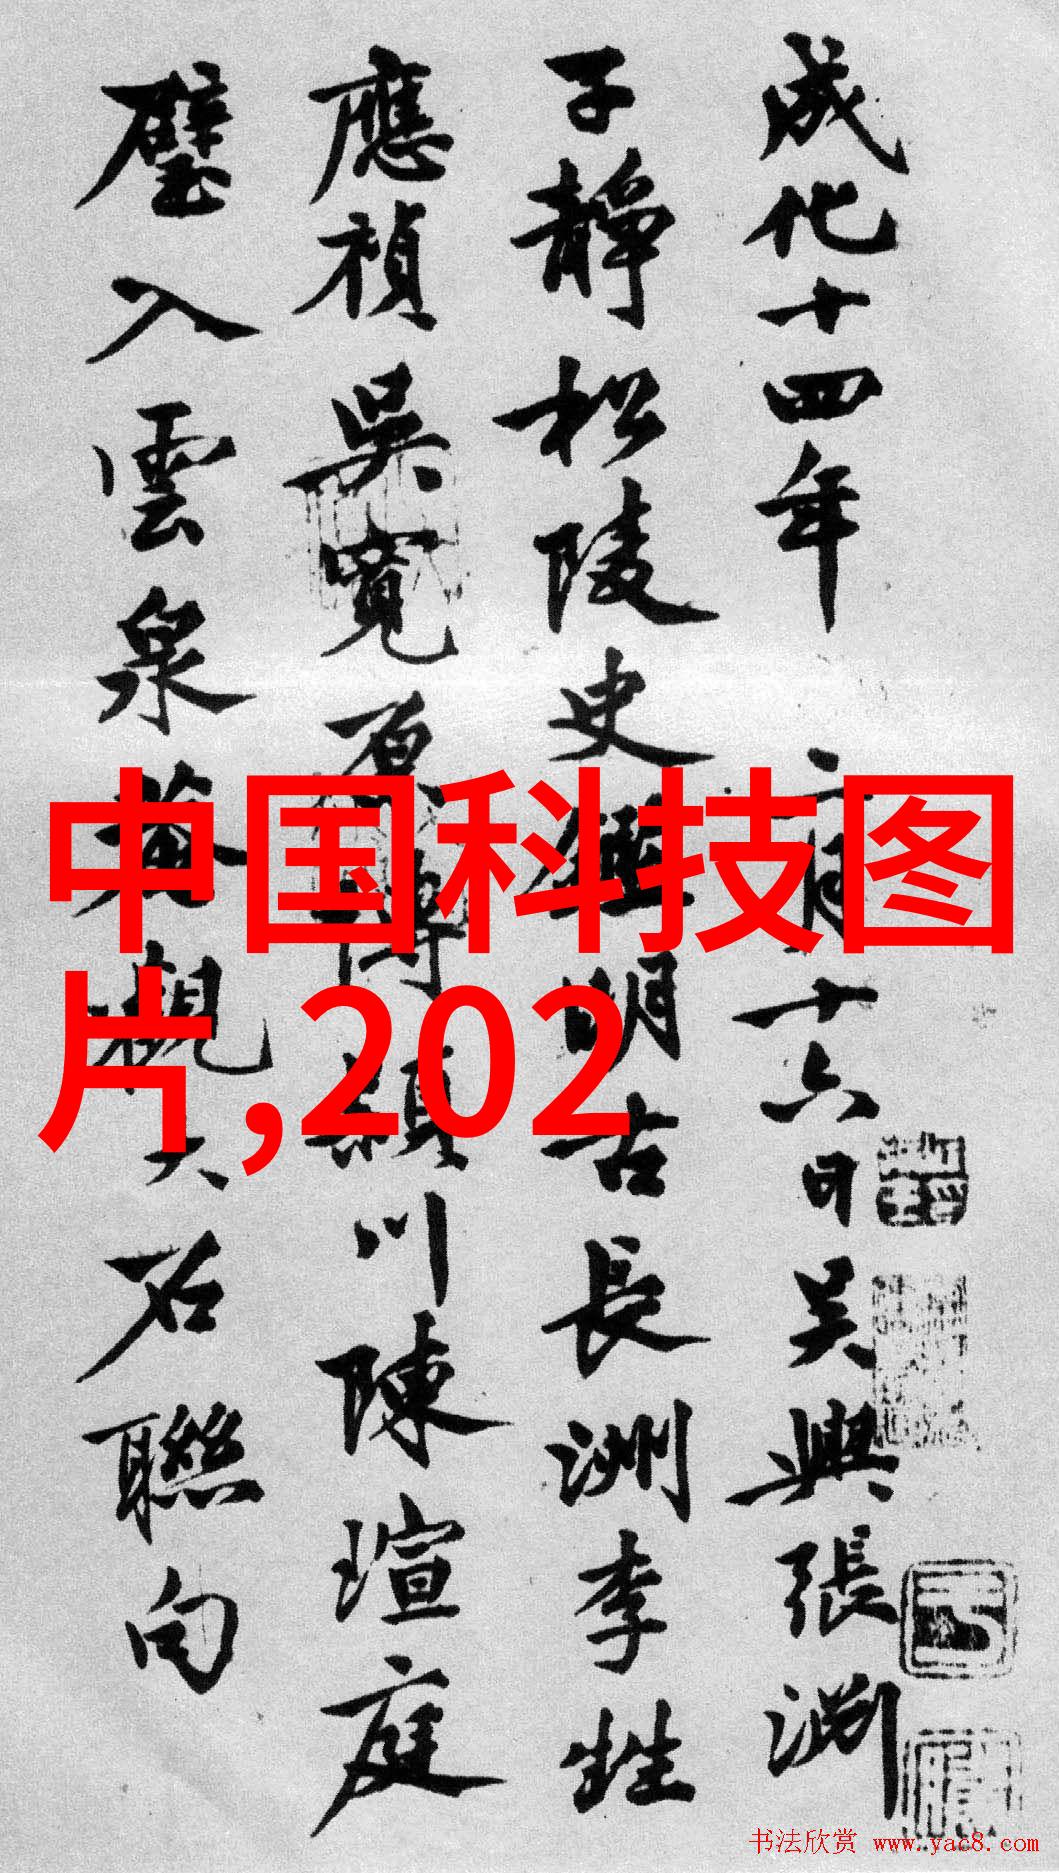 成化十四年 二月十六日吴興張淵
子靜松陵史鑑明古長洲李甡
應禎吳寬原博潁川陳瑄庭
璧入雲泉菴觀大石聯句
中国科技图
片,202
书法欣赏 www.yac8.com